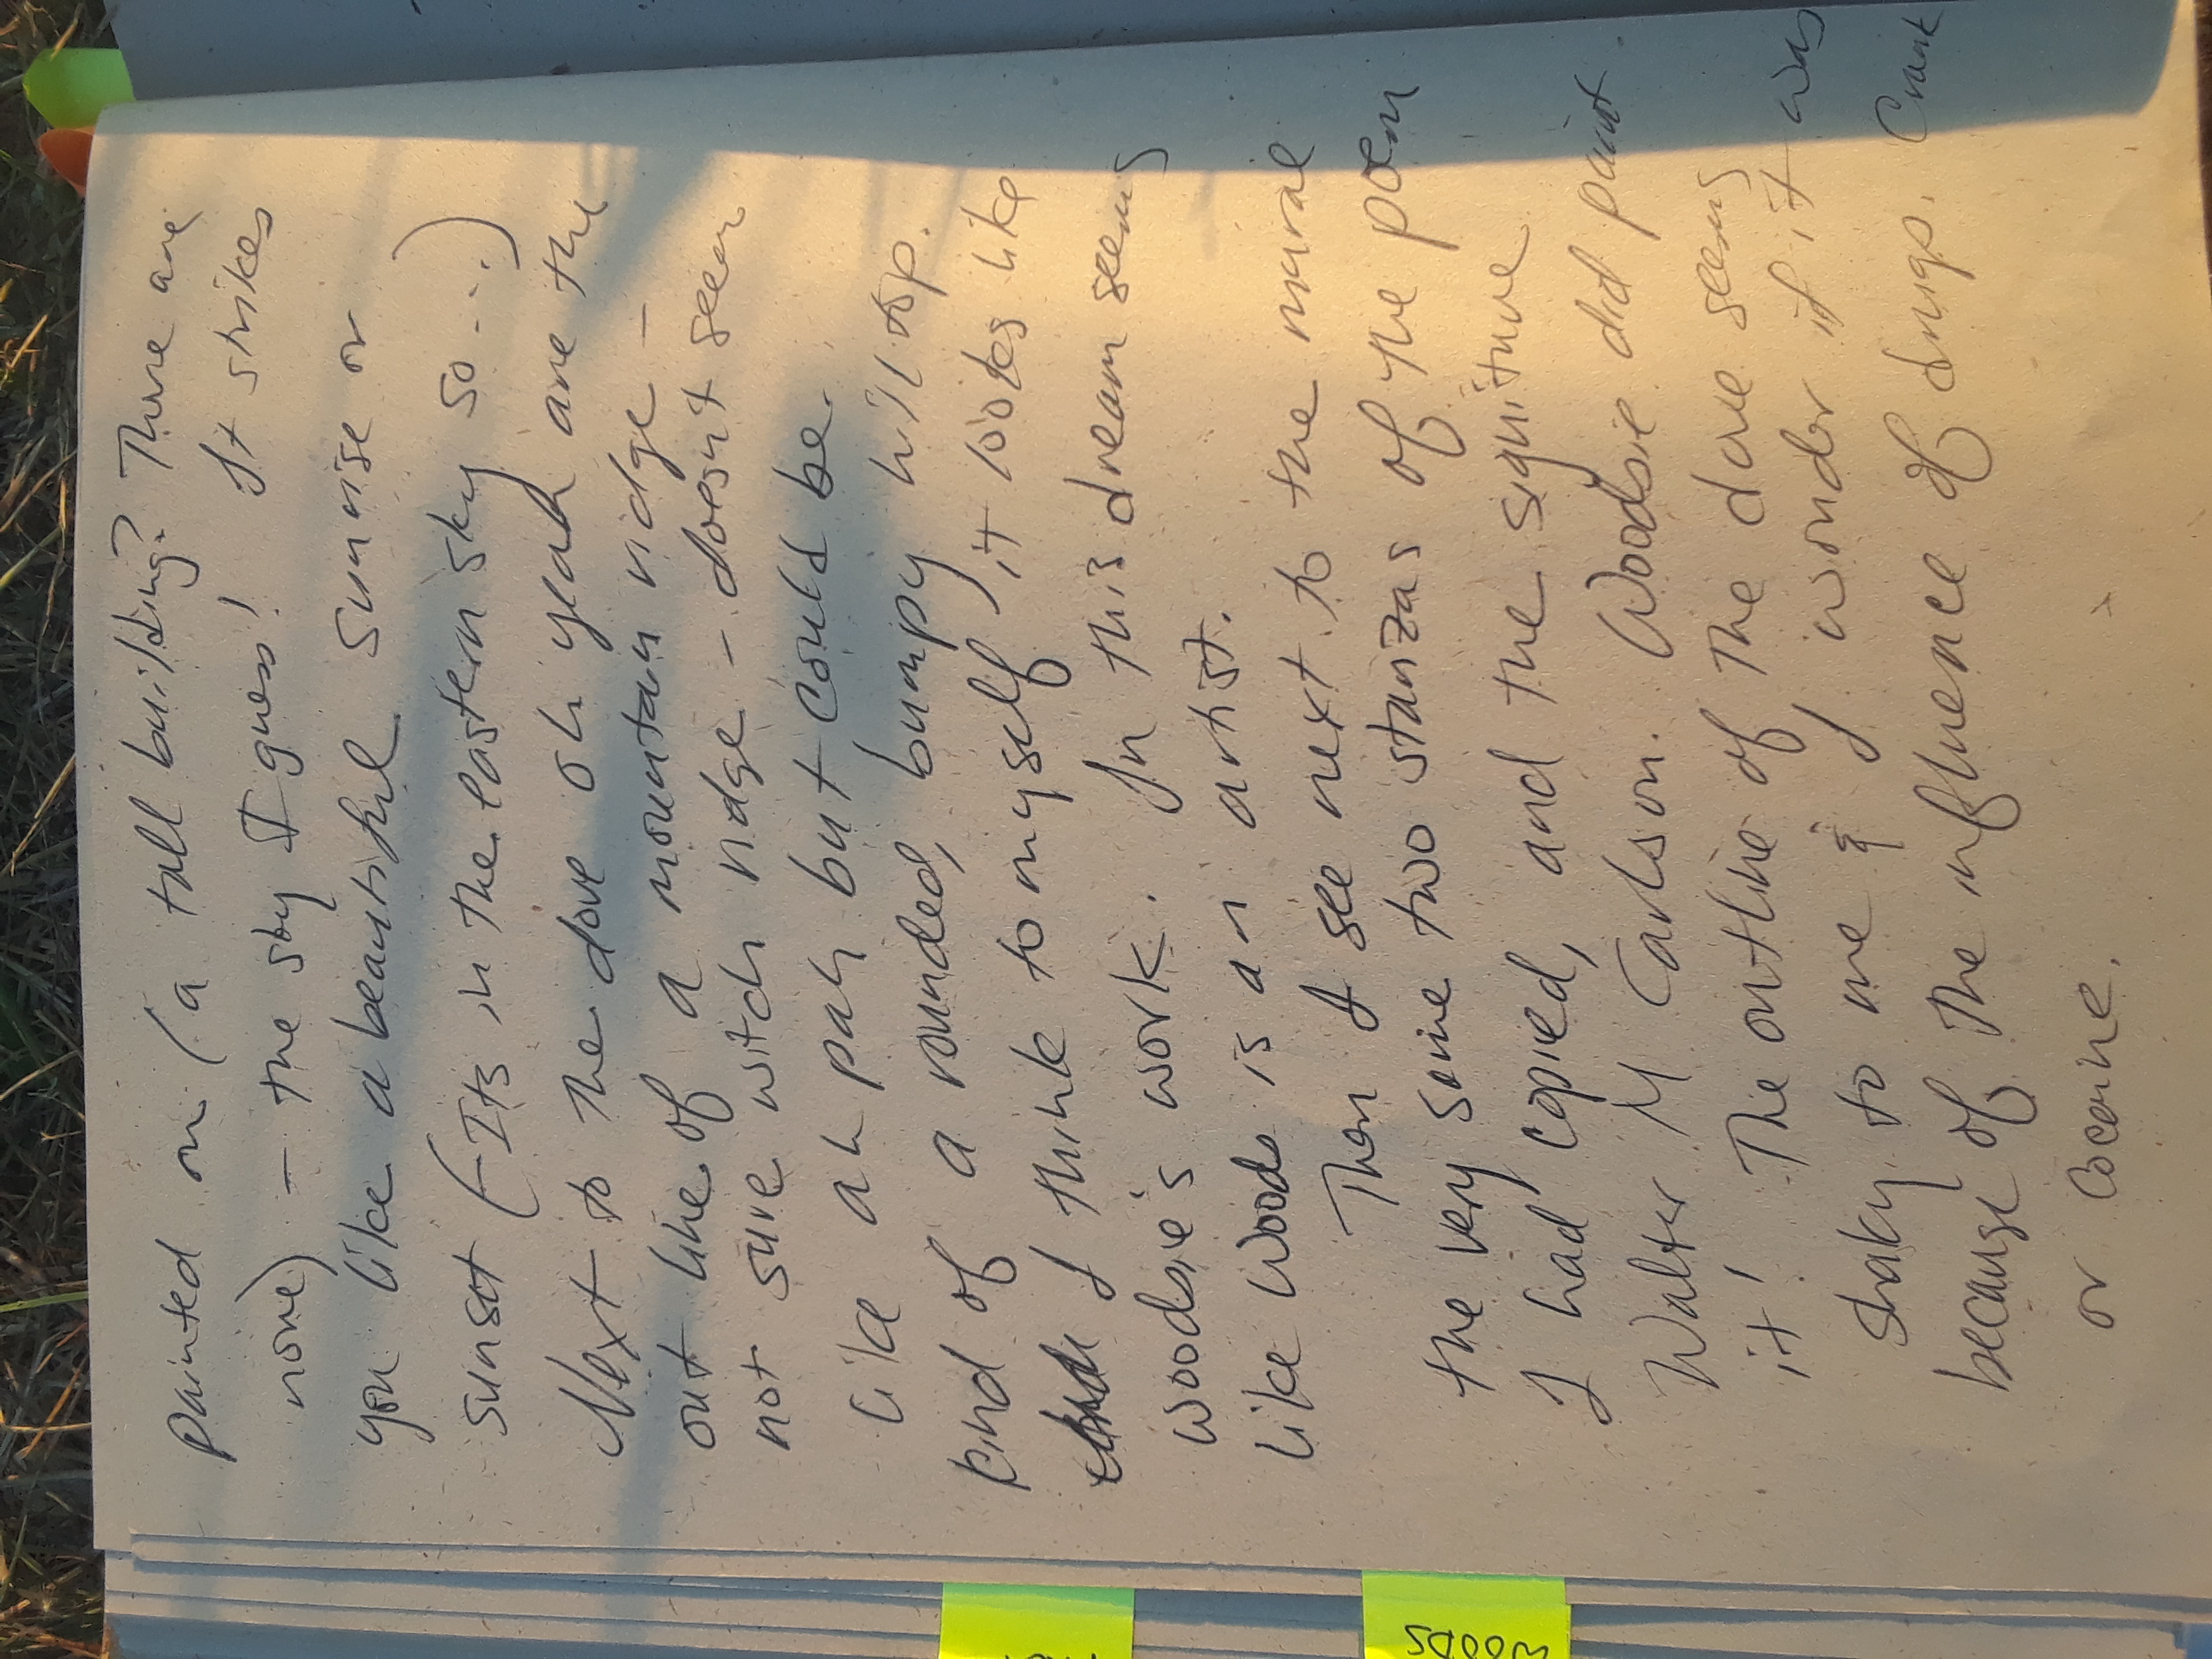 painted on (a tall building? There are
none) – the sky I guess! It strikes
you like a beautiful sunrise or
sunset (-Its in the eastern sky so...)
Next to the dove oh yeah are the
out line of a mountain ridge –
not sure witch ridge – doesn't seem
like ah pah but could be.
kind of a rounded, bumpy hill top.
I think to myself, it looks like
woodsie's work. In this dream seems
like Woods is an artist.
Then I see next to the mural
the very same two stanzas of the poem
I had copied, and the signiture
Walter M Carlson. Woodsie did paint
it! The outline of the dove seems
shaky to me & I wonder if it was
because of the influence of drugs. Crank
or Cocaine.
WOODS